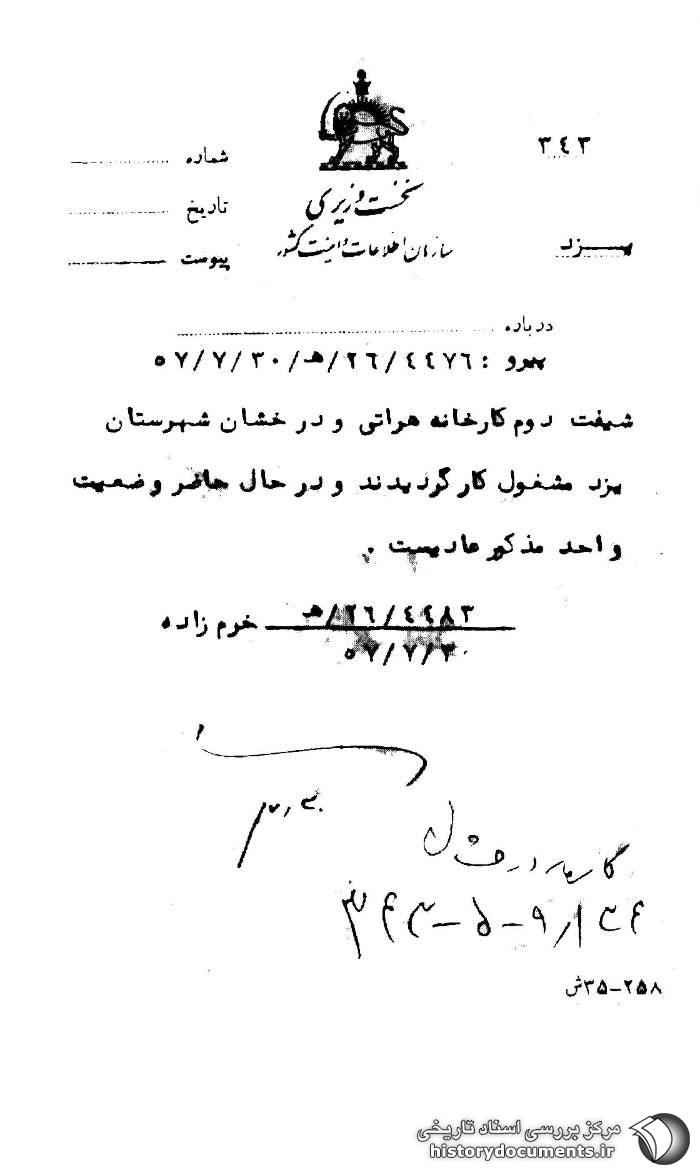 ۳۴۳
شماره
نخست وزیری
تاریخ
سازمان اطلاعات و امنیت کشور
یزد
پیوست
درباره
پیرو : ۲۶/۴۴۷۶/هـ/۵۷/۷/۳۰
شیفت دوم کارخانه هراتی و درخشان شهرستان
یزد مشغول کار گردیدند و در حال حاضر وضعیت
واحد مذکور عادیست .
۲۶/۴۴۸۳/هـ خرم زاده
۵۷/۷/۳۰
۲۵۸-۳۵ش
مرکز بررسی اسناد تاریخی
historydocuments.ir